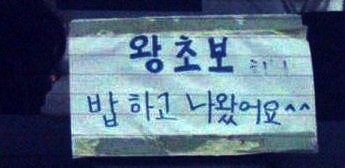 왕초보
밥 하고 나왔어요^^